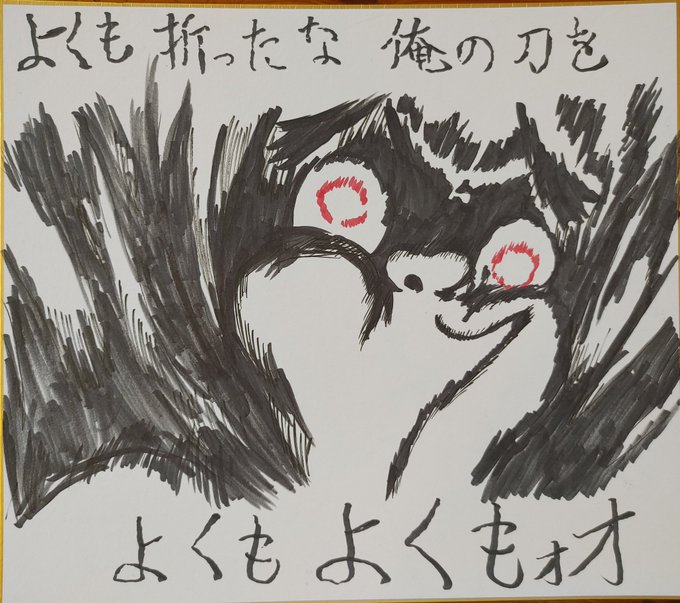 よくも 折ったな 俺の刀を
よくも よくもォオ